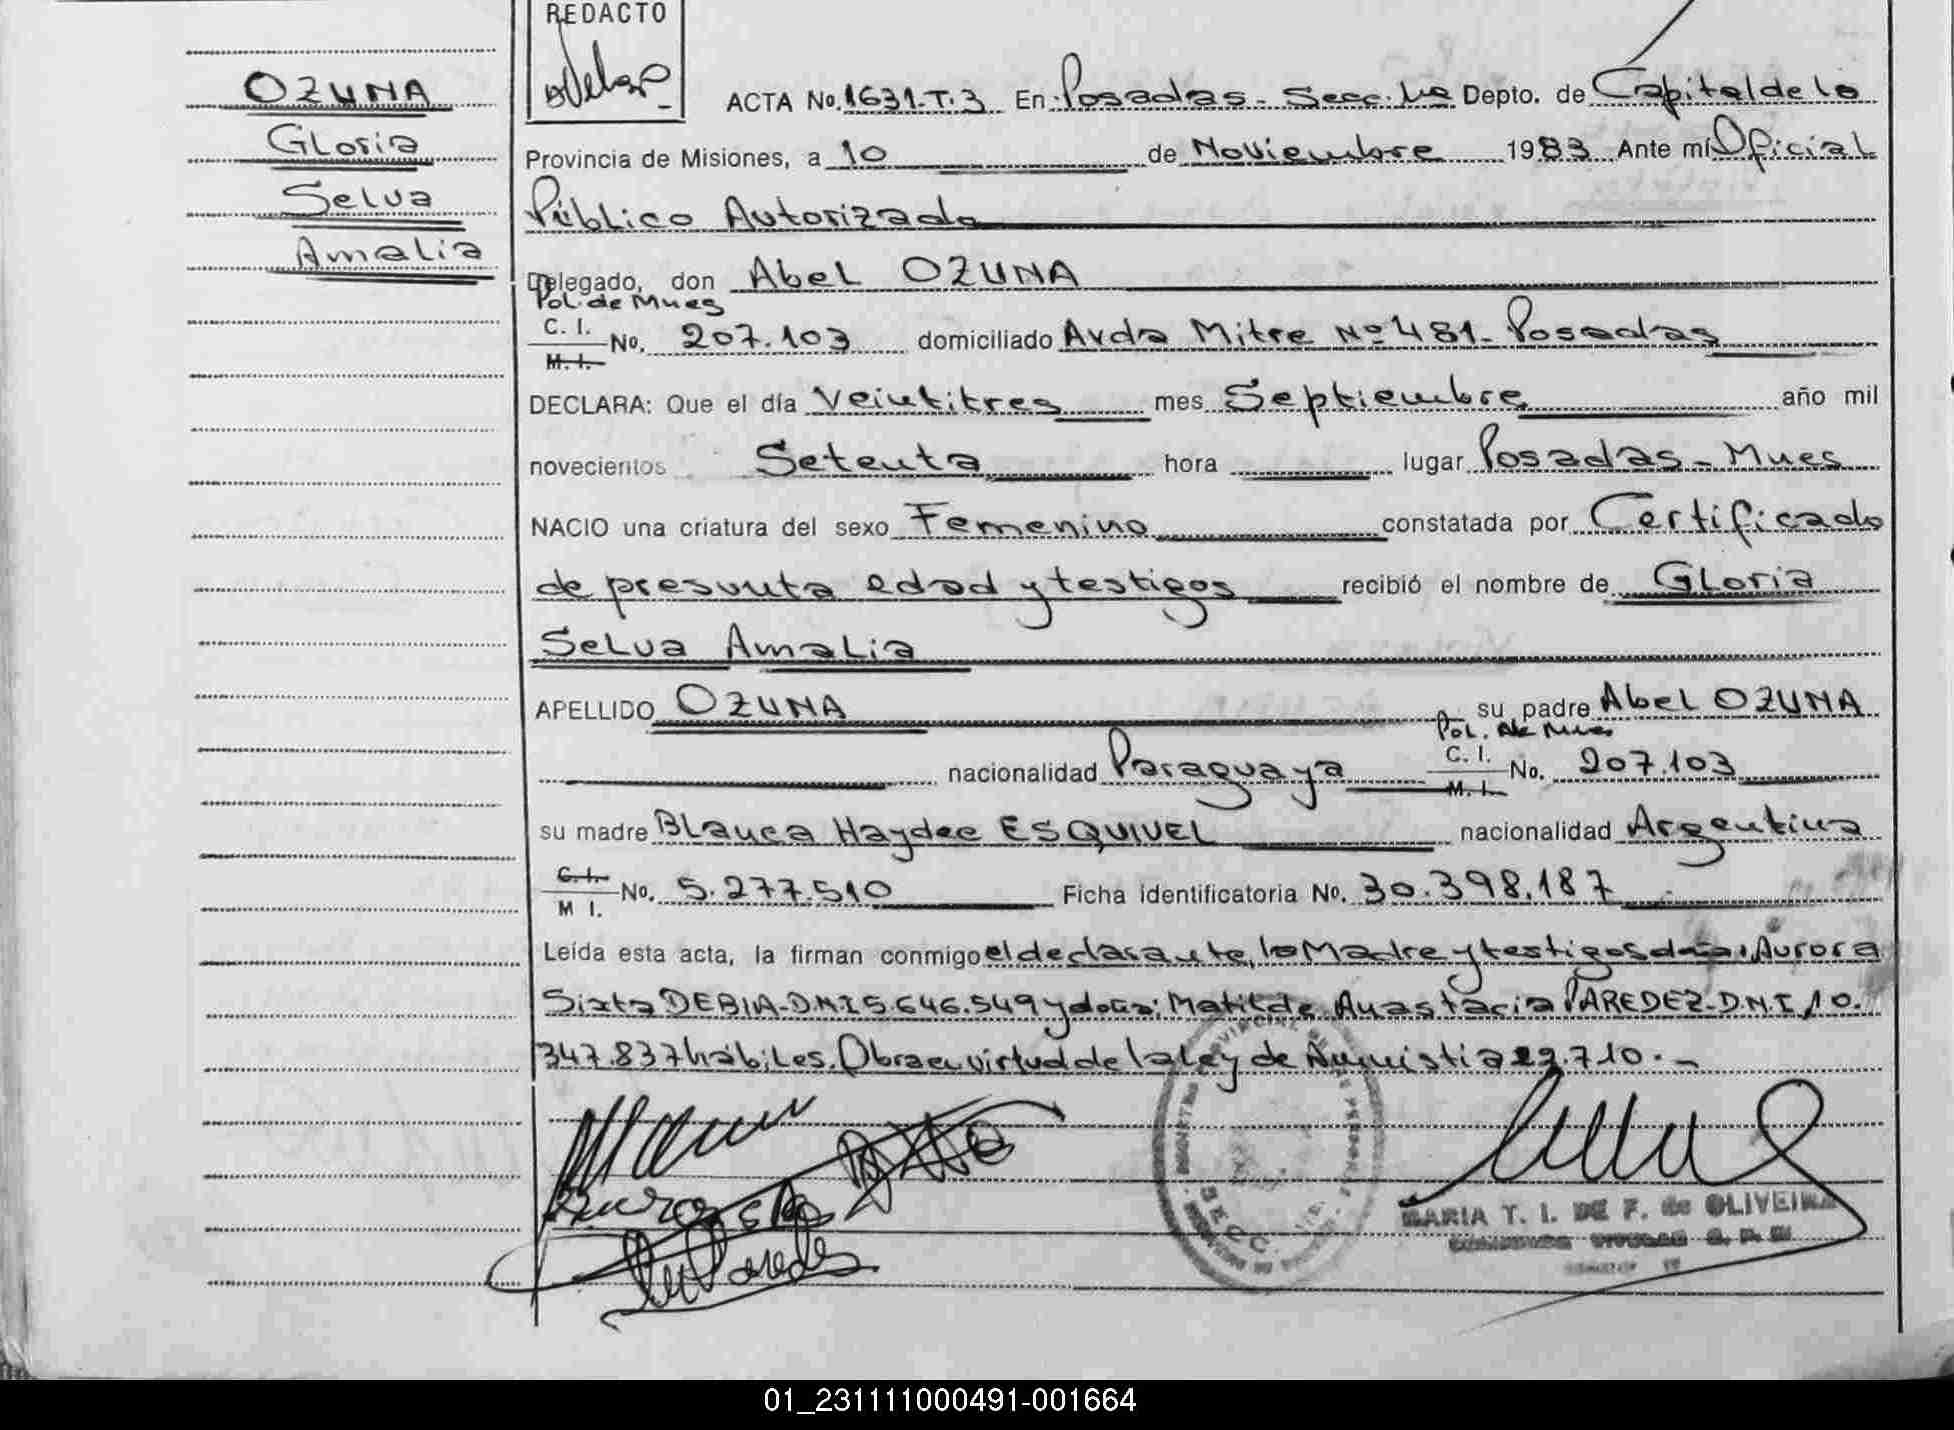 REDACTO
OZUNA
Gloria
Selva
Amalia
ACTA No. 1631-T.3 En Posadas - Secc. 1ra Depto. de Capital de la
Provincia de Misiones, a 10 de Noviembre 1983 Ante mí Oficial
Público Autorizado
Delegado, don Abel OZUNA
Pol. de Mnes
C. I.
M. I. No. 207.103 domiciliado Avda Mitre Nº 481 - Posadas
DECLARA: Que el día Veintitres mes Septiembre año mil
novecientos Setenta hora lugar Posadas - Mnes
NACIO una criatura del sexo Femenino constatada por Certificado
de presunta edad y testigos recibió el nombre de Gloria
Selva Amalia
APELLIDO OZUNA su padre Abel OZUNA
Pol. de Mnes
nacionalidad Paraguaya C. I. M. I. No. 207.103
su madre Blanca Haydee ESQUIVEL nacionalidad Argentina
C. I.
M I. No. 5.277.510 Ficha identificatoria No. 30.398.187
Leída esta acta, la firman conmigo el declarante, la Madre y testigos doña: Aurora
Sixta DEBIA - D.N.I 5.646.549 y doña: Matilde Anastacia PAREDEZ - D.N.I, 10.
347.837 hábiles. Obra en virtud de la Ley de Amnistia 22.710. -
MARIA T. I. DE F. de OLIVEIRA
01_231111000491-001664